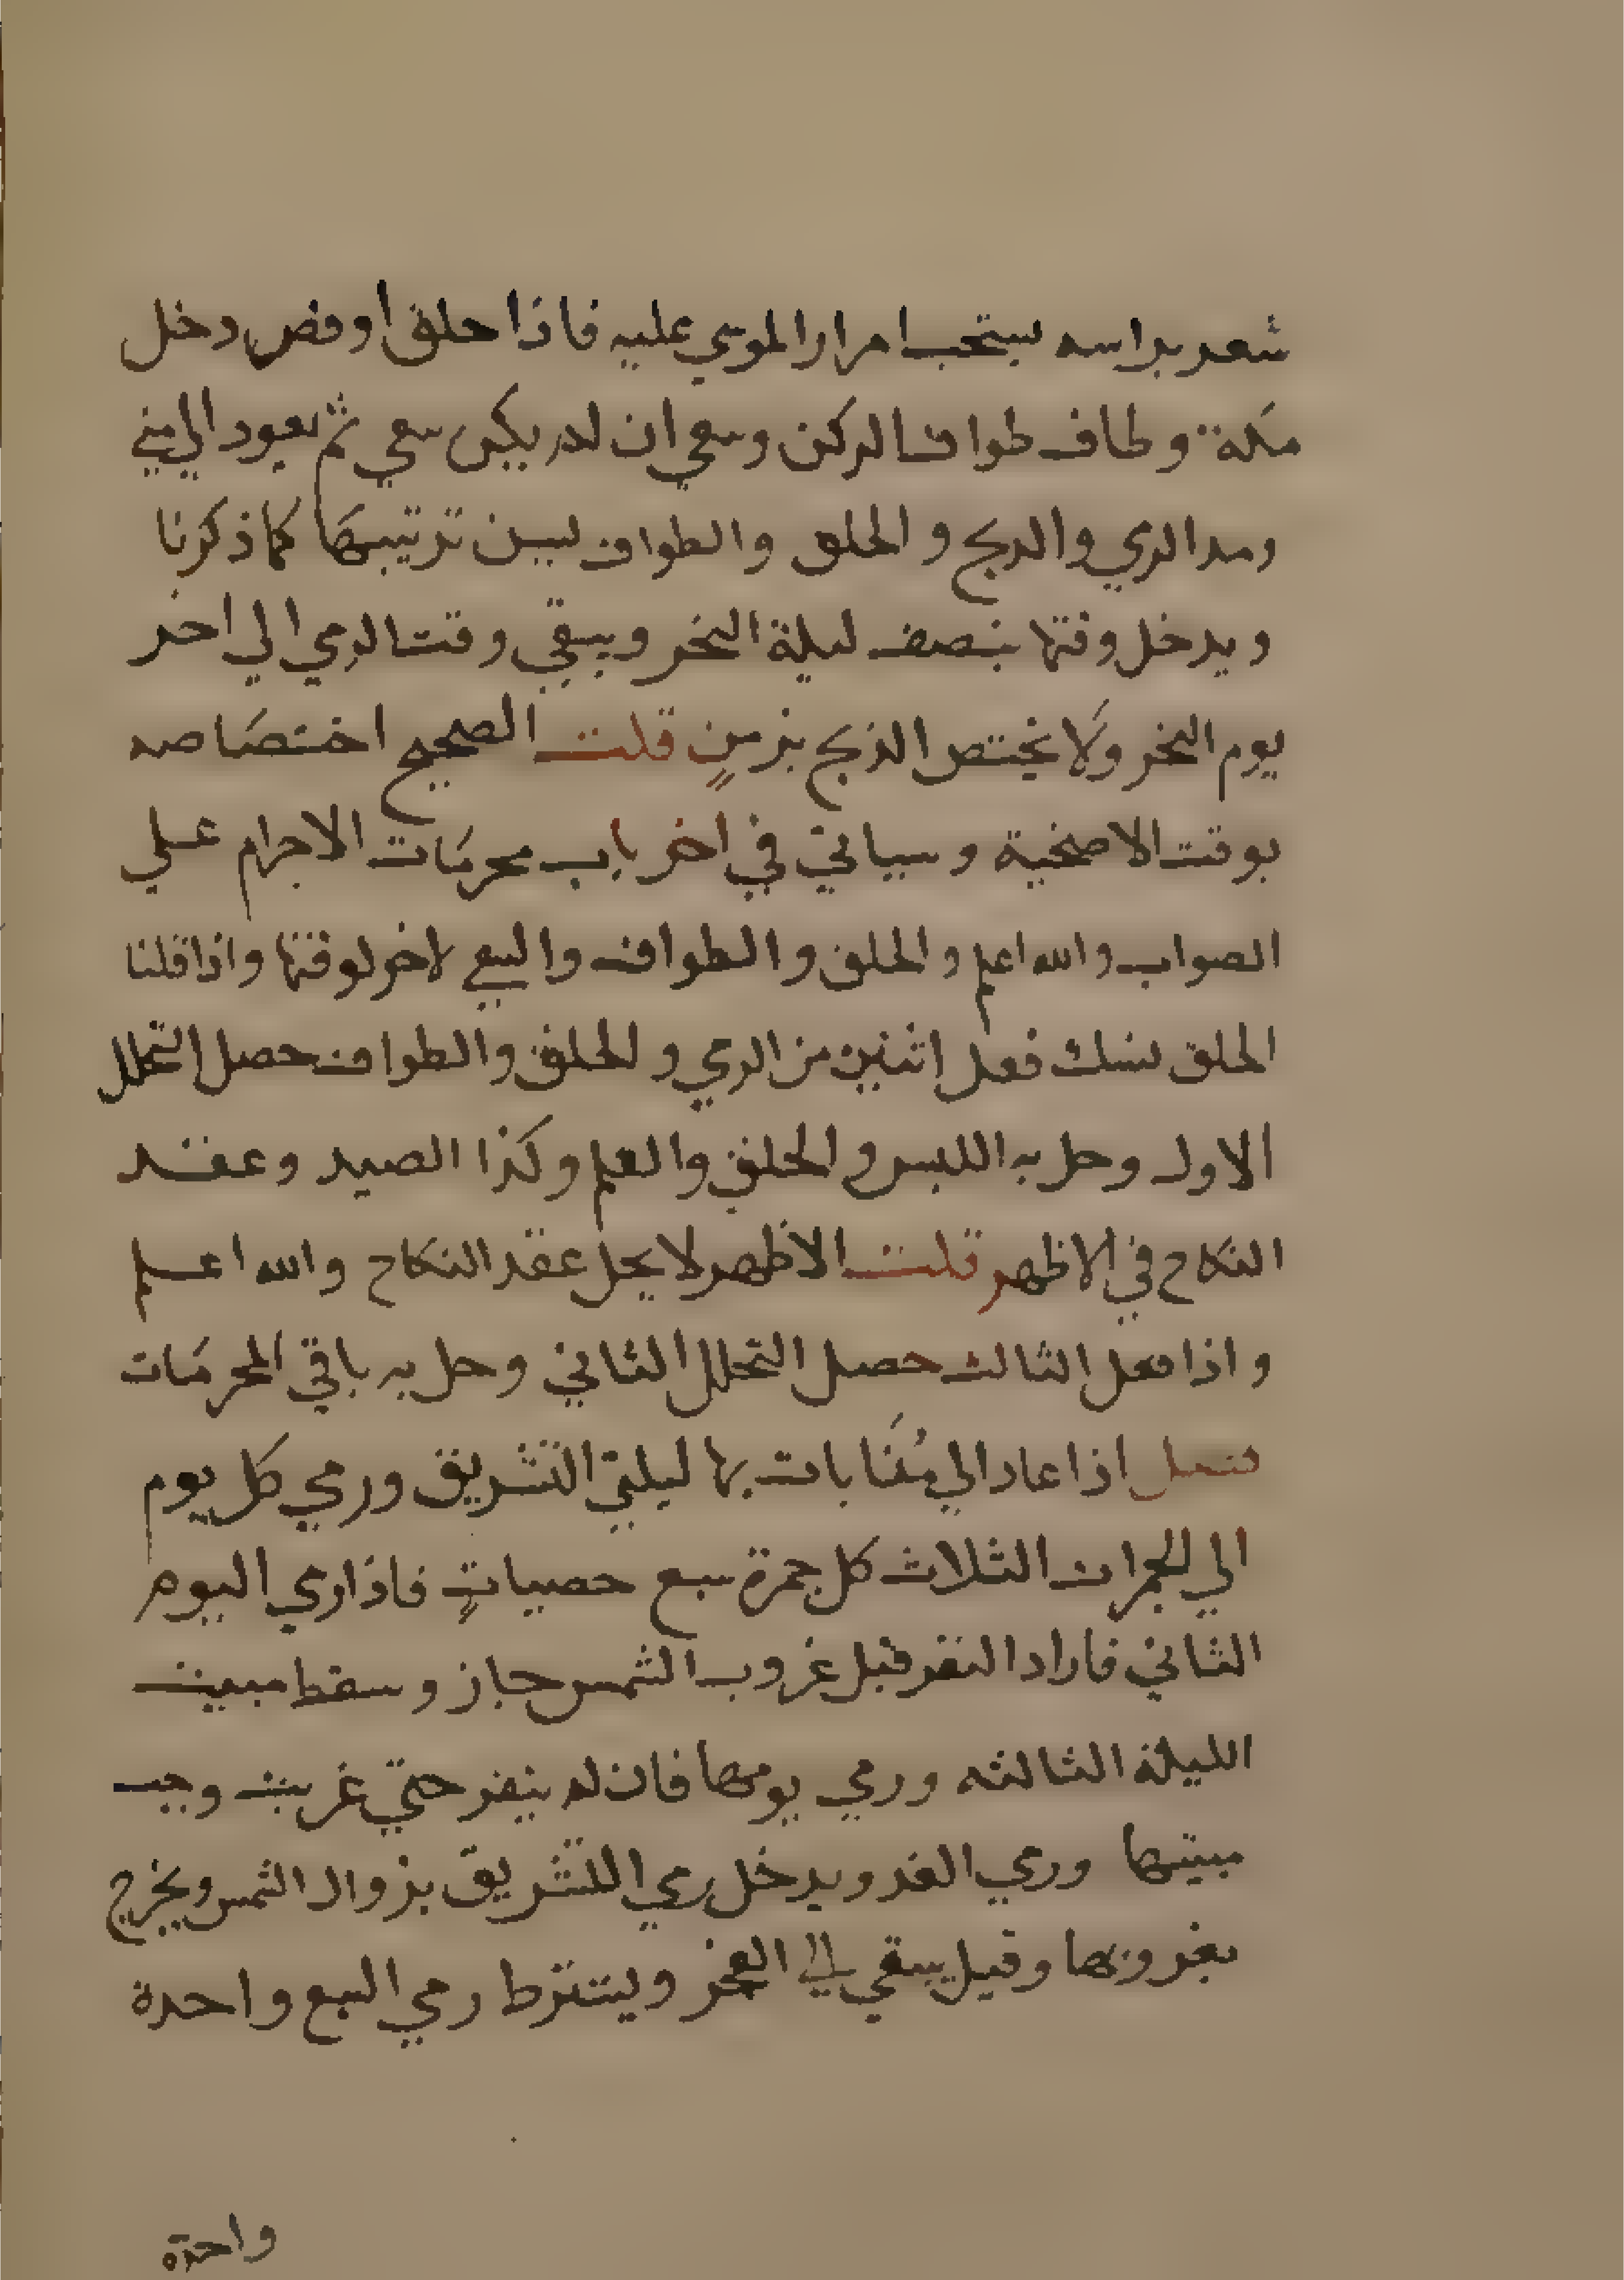 شعر براسه يستحب امرار الموسي عليه فاذا حلق او قص دخل
مكة وطاف طواف الركن وسعي ان لم يكن سعي ثم يعود الي مني
وهذا الرمي والذبح والحلق والطواف يسن ترتيبها كما ذكرنا
ويدخل وقتها بنصف ليلة النحر ويبقي وقت الرمي الي اخر
يوم النحر ولا يختص الذبح بزمنٍ قلت الصحيح اختصاصه
بوقت الاضحية وسياتي في اخر باب محرمات الاحرام علي
الصواب والله اعلم والحلق والطواف والسعي لاخر لوقتها واذا قلنا
الحلق نسك ففعل اثنين من الرمي والحلق والطواف حصل التحلل
الاول وحل به اللبس والحلق والقلم وكذا الصيد وعقد
النكاح في الاظهر قلت الاظهر لا يحل عقد النكاح والله اعلم
واذا فعل الثالث حصل التحلل الثاني وحل به باقي المحرمات
فصل اذا عاد الي مُنَا بات بها ليلتي التشريق ورمي كل يوم
الي الجمرات الثلاث كل جمرة سبع حصياتٍ فاذا رمي اليوم
الثاني فاراد النفر قبل غروب الشمس جاز وسقط مبيت
الليلة الثالثه ورمي يومها فان لم ينفر حتي غربت وجب
مبيتها ورمي الغد ويدخل رمي اللتشريق بزوال الشمس ويخرج
بغروبها وقيل يبقي الي الفجر ويشترط رمي السبع واحدة
واحدة